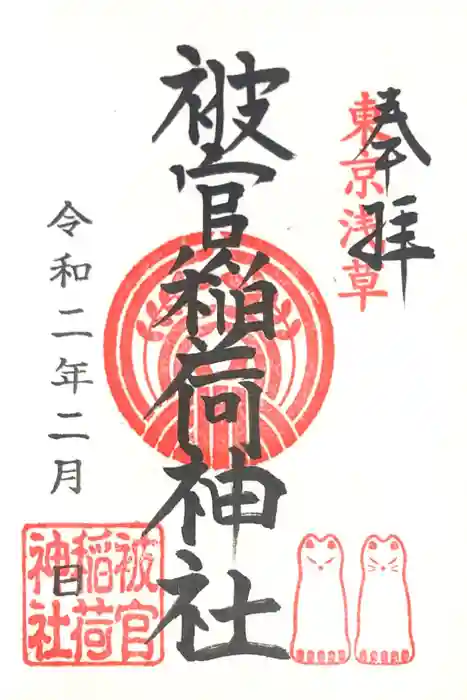 奉拝
東京浅草
被官稲荷神社
令和二年二月
日
被官
稲荷
神社